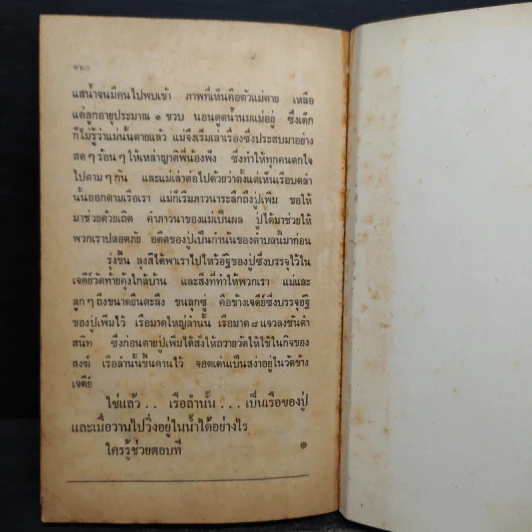 ๑๖๐
แสน้ำจนมีคนไปพบเข้า ภาพที่เห็นคือตัวแม่ตาย เหลือ
แต่ลูกอายุประมาณ ๑ ขวบ นอนดูดน้ำนมแม่อยู่ ซึ่งเด็ก
ก็ไม่รู้ว่าแม่นั้นตายแล้ว แม่จึงเริ่มเล่าเรื่องซึ่งประสบมาอย่าง
สดๆร้อนๆให้เหล่าญาติพี่น้องฟัง ซึ่งทำให้ทุกคนตกใจ
ไปตามๆกัน และแม่เล่าต่อไปด้วยว่าตั้งแต่เห็นเรือบดลำ
นั้นออกตามเรือเรา แม่ก็เริ่มภาวนาระลึกถึงปู่เพิ่ม ขอให้
มาช่วยด้วยเถิด คำภาวนาของแม่เป็นผล ปู่ได้มาช่วยให้
พวกเราปลอดภัย อดีตของปู่เป็นกำนันของตำบลนี้มาก่อน
รุ่งขึ้น ลุงสีได้พาเราไปไหว้อัฐิของปู่ซึ่งบรรจุไว้ใน
เจดีย์วัดท้ายคุ้งใกล้บ้าน และสิ่งที่ทำให้พวกเรา แม่และ
ลูกๆถึงขนาดยืนตะลึง ขนลุกซู่ คือข้างเจดีย์ซึ่งบรรจุอัฐิ
ของปู่เพิ่มไว้ เรือมาดใหญ่ลำนั้น เรือมาด ๘ แจวลงชันดำ
สนิท ซึ่งก่อนตายปู่เพิ่มได้สั่งให้ถวายวัดให้ใช้ในกิจของ
สงฆ์ เรือลำนั้นขึ้นคานไว้ จอดเด่นเป็นสง่าอยู่ในวัดข้าง
เจดีย์
ใช่แล้ว.. เรือลำนั้น... เป็นเรือของปู่
และเมื่อวานไปวิ่งอยู่ในน้ำได้อย่างไร
ใครรู้ช่วยตอบที